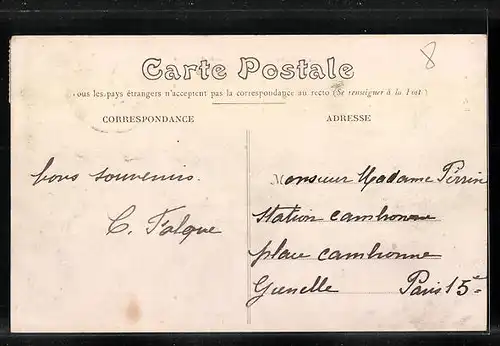 8
Carte Postale
ous les pays étrangers n'acceptent pas la correspondance au recto (Se renseigner à la Post )
CORRESPONDANCE
ADRESSE
bons souvenirs.
C. Falque
Monsieur Madame Perrin
Station cambronne
place cambronne
Grenelle Paris 15e